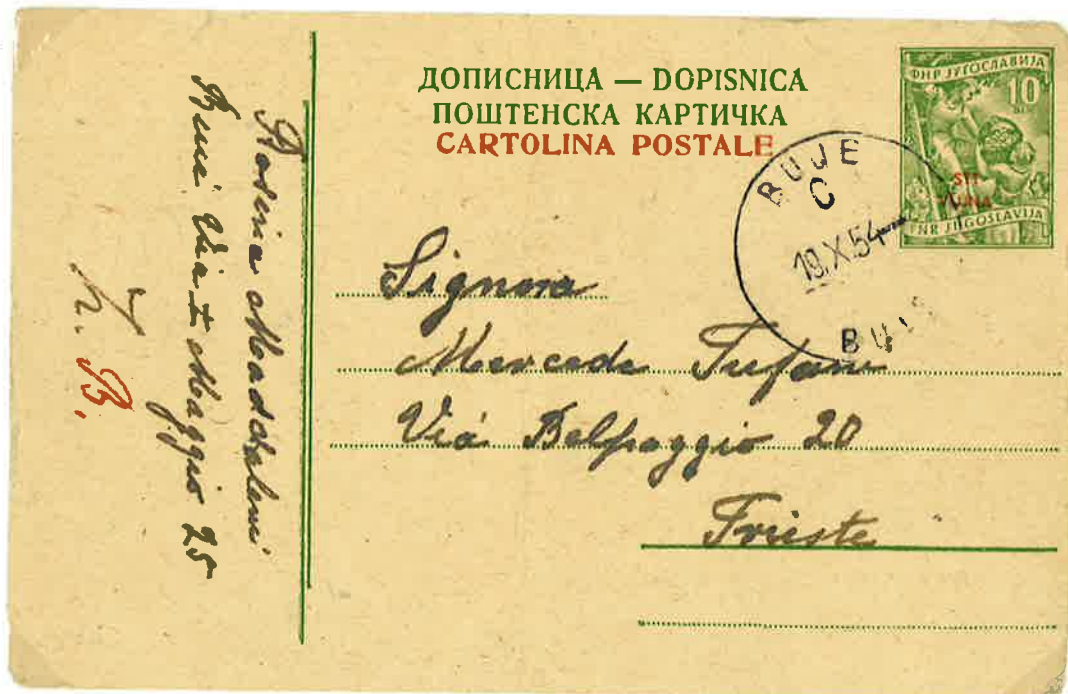 ДОПИСНИЦА — DOPISNICA
ПОШТЕНСКА КАРТИЧКА
CARTOLINA POSTALE
ФНР ЈУГОСЛАВИЈА
10
STT
VUJNA
FNR JUGOSLAVIJA
BUJE
C
19.X.54
BUJE
Signora
Mercede Tufani
Via Belpoggio 20
Trieste
Rosina Maddaleni
Buie Via I Maggio 25
Z. B.